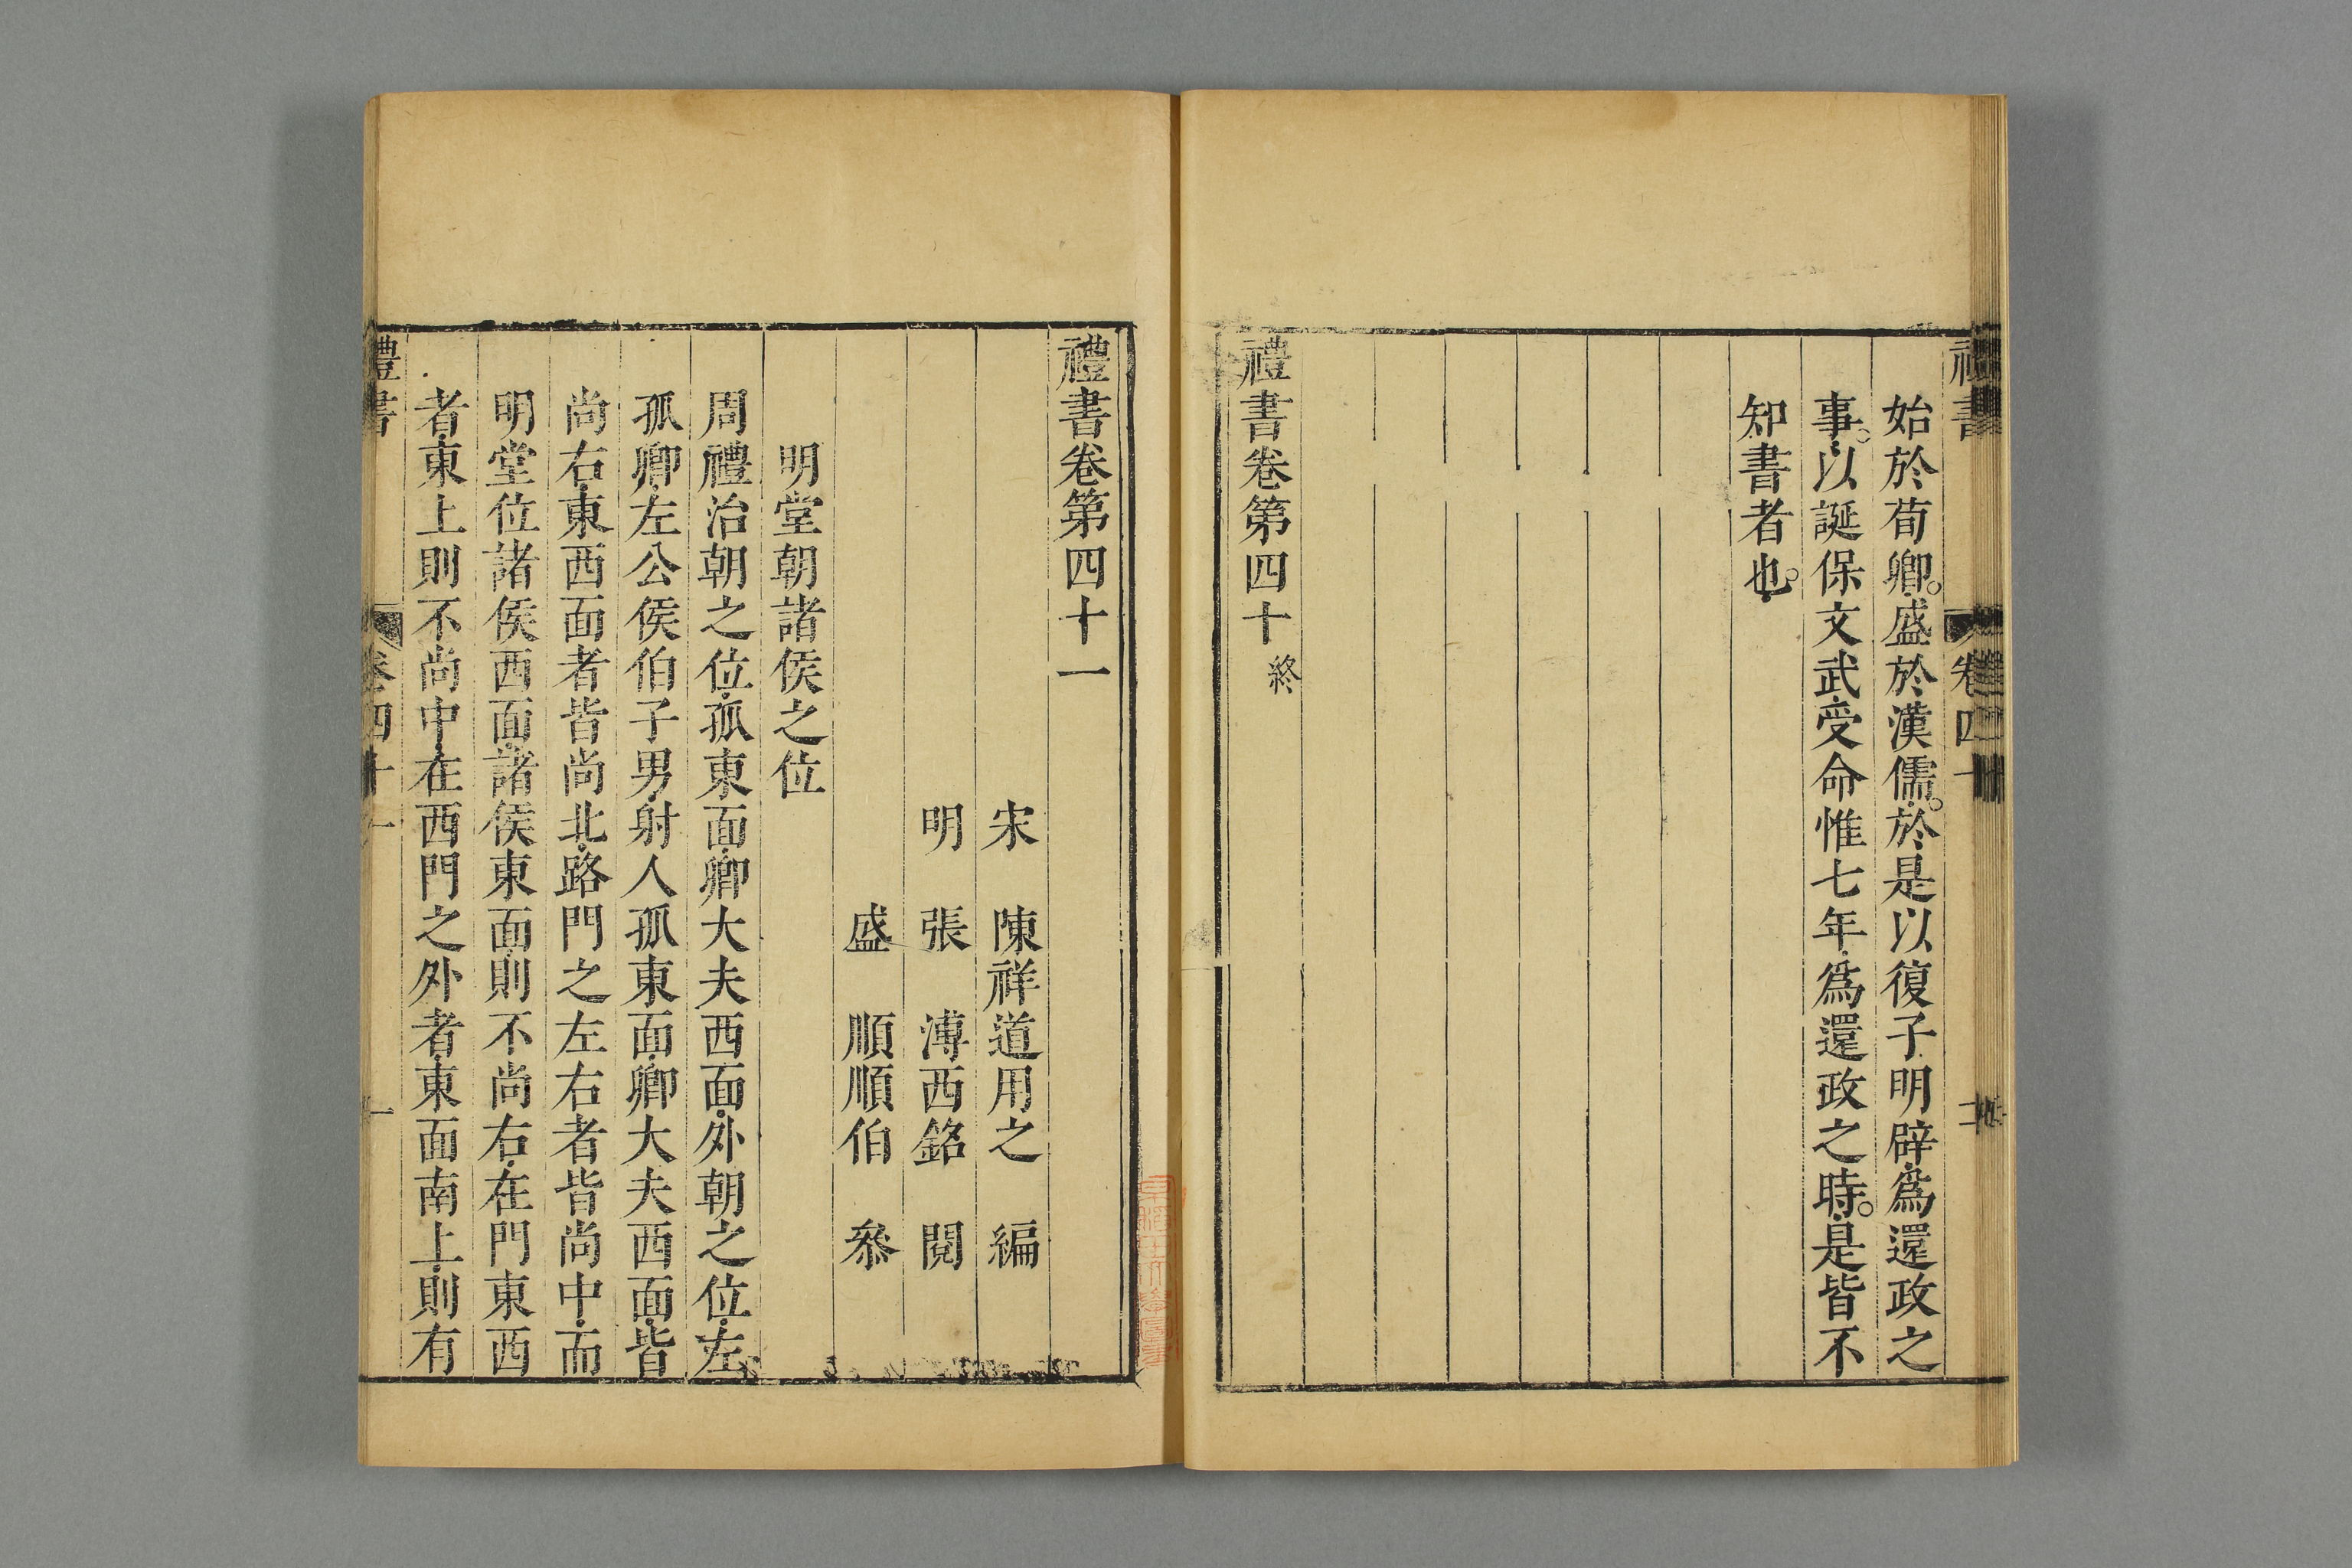 始於荀卿。盛於漢儒。於是以復子明辟爲還政之
事。以誕保文武受命惟七年爲還政之時。是皆不
知書者也。
禮書卷第四十 終
禮書卷第四十一
宋 陳祥道用之 編
明 張 溥西銘 閱
盛 順順伯 叅
明堂朝諸侯之位
周禮治朝之位孤東面卿大夫西面外朝之位左
孤卿左公侯伯子男射人孤東面卿大夫西面皆
尚右東西面者皆尚北路門之左右者皆尚中而
明堂位諸侯西面諸侯東面則不尚右在門東西
者東上則不尚中在西門之外者東面南上則有
禮書 卷四十一 一